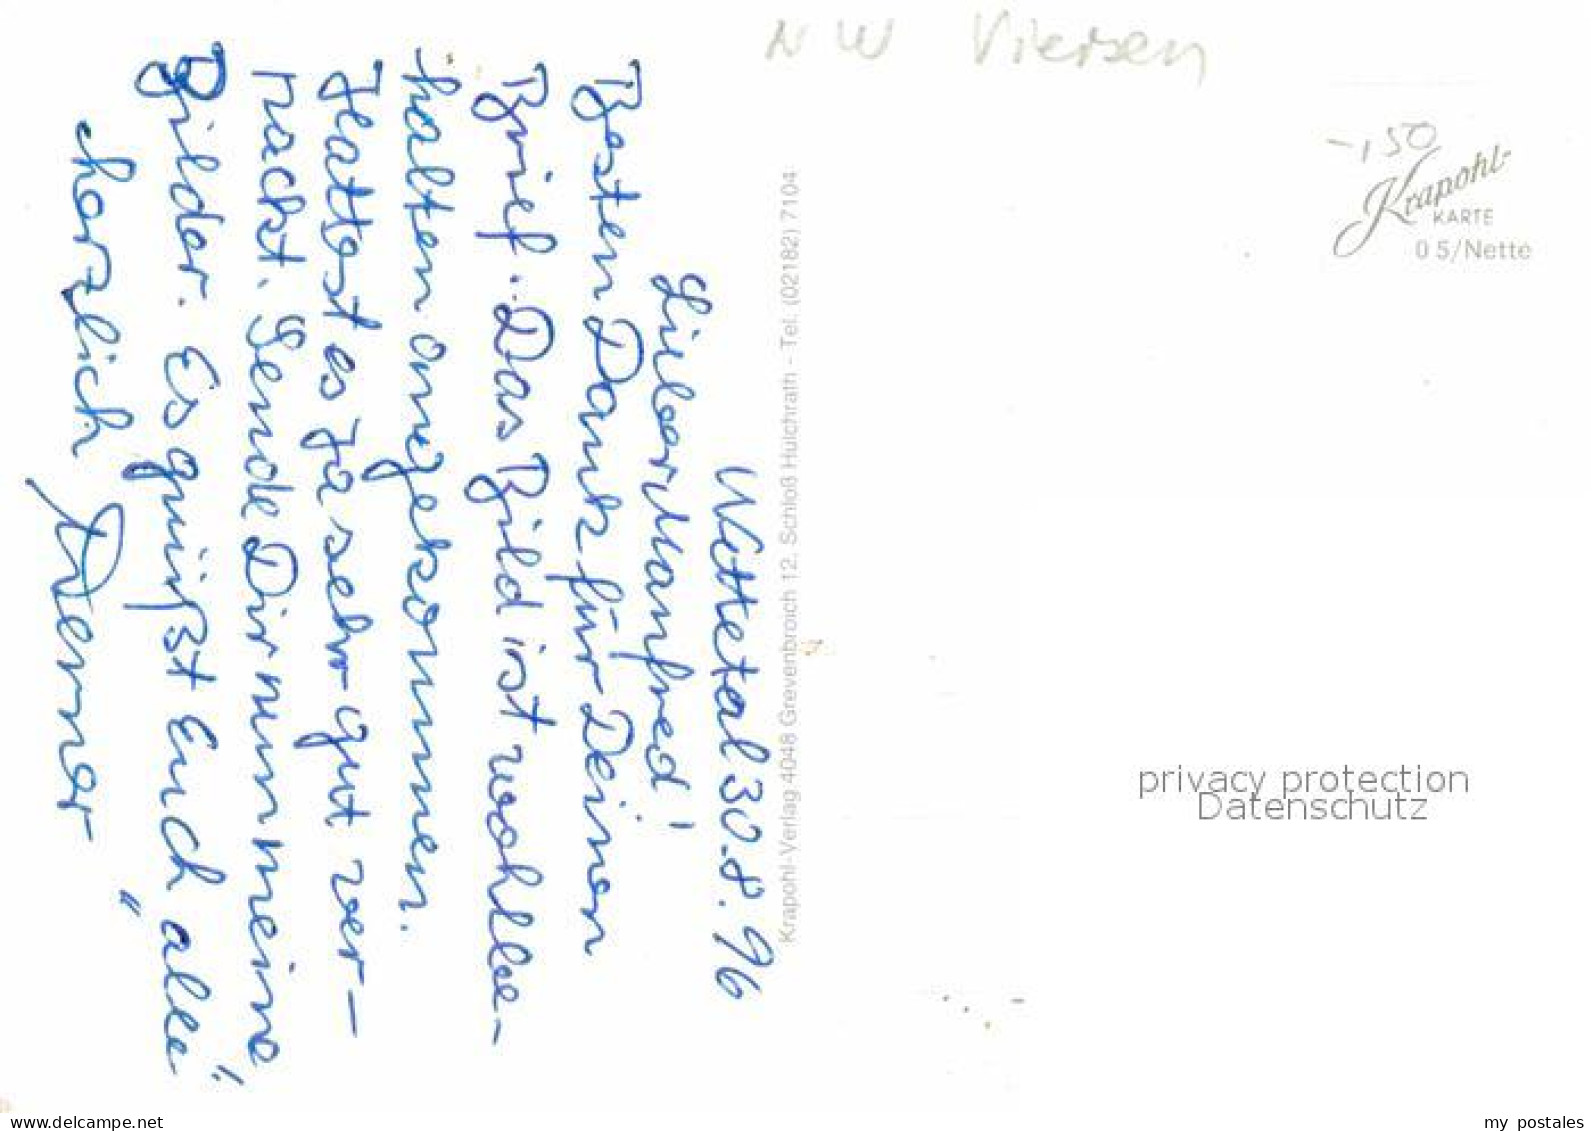 NW Viersen
-,50
Krapohl-
KARTE
0 5/Nette
Wittetal 30.8.96
Lieber Manfred!
Besten Dank für Deinen
Brief. Das Bild ist wohlbe-
halten angekommen.
Hattest es ja sehr gut ver-
packt. Sende Dir nun meine
Bilder. Es grüßt Euch "alle"
herzlich Werner
Krapohl-Verlag 4048 Grevenbroich 12, Schloß Hülchrath - Tel. (02182) 7104
privacy protection
Datenschutz
my_postales
delcampe.net